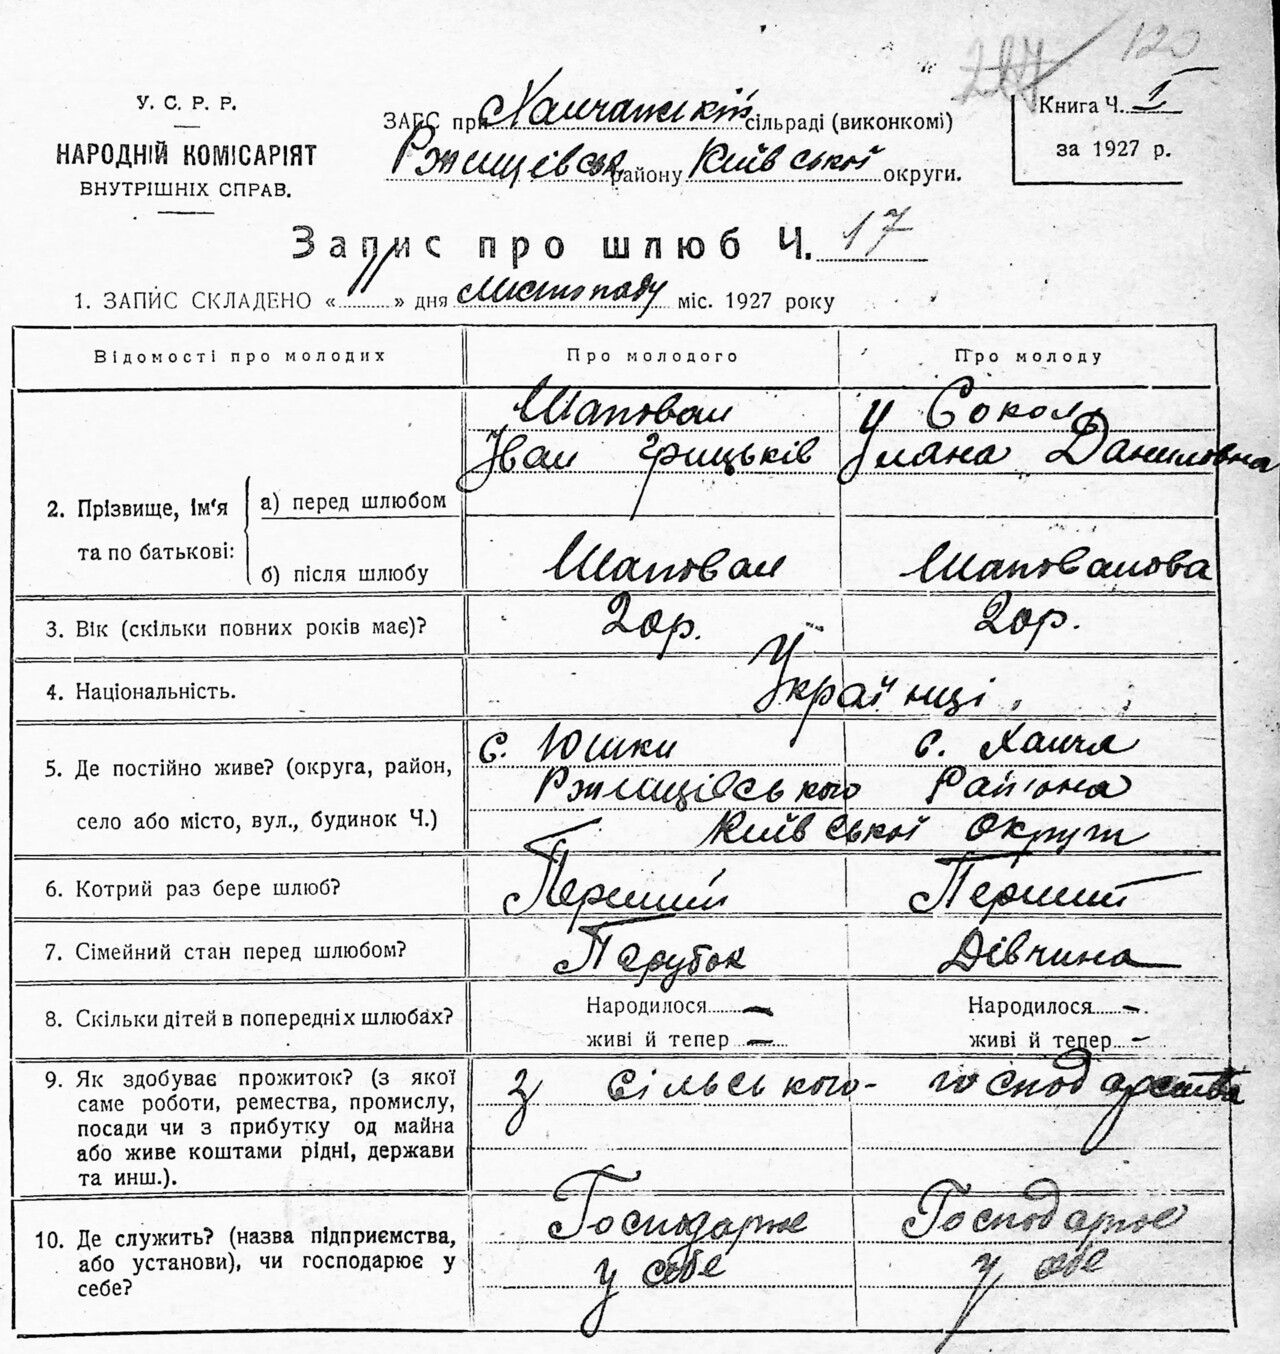 207 120
У. С. Р. Р.
НАРОДНІЙ КОМІСАРІЯТ
ВНУТРІШНІХ СПРАВ.
ЗАГС при Халчанській сільраді (виконкомі)
Ржищівськ району Київської округи.
Книга Ч. I
за 1927 р.
Запис про шлюб Ч. 17
1. ЗАПИС СКЛАДЕНО « 11 » дня листопаду міс. 1927 року
Відомості про молодих Про молодого Про молоду
2. Прізвище, ім'я та по батькові:
а) перед шлюбом
Шаповал
Іван Грицьків
Сокол
Уляна Даниловна
б) після шлюбу Шаповал Шаповалова
3. Вік (скільки повних років має)? 20р. 20р.
4. Національність. Українці
5. Де постійно живе? (округа, район,
село або місто, вул., будинок Ч.)
с. Юшки с. Халча
Ржищівського Района
Київської Округи
6. Котрий раз бере шлюб? Перший Перший
7. Сімейний стан перед шлюбом? Парубок Дівчина
8. Скільки дітей в попередніх шлюбах?
Народилося — Народилося —
живі й тепер — живі й тепер —
9. Як здобуває прожиток? (з якої
саме роботи, ремества, промислу,
посади чи з прибутку од майна
або живе коштами рідні, держави
та инш.).
З сільського господарства
10. Де служить? (назва підприємства,
або установи), чи господарює у
себе?
Господарює Господарює
у себе у себе